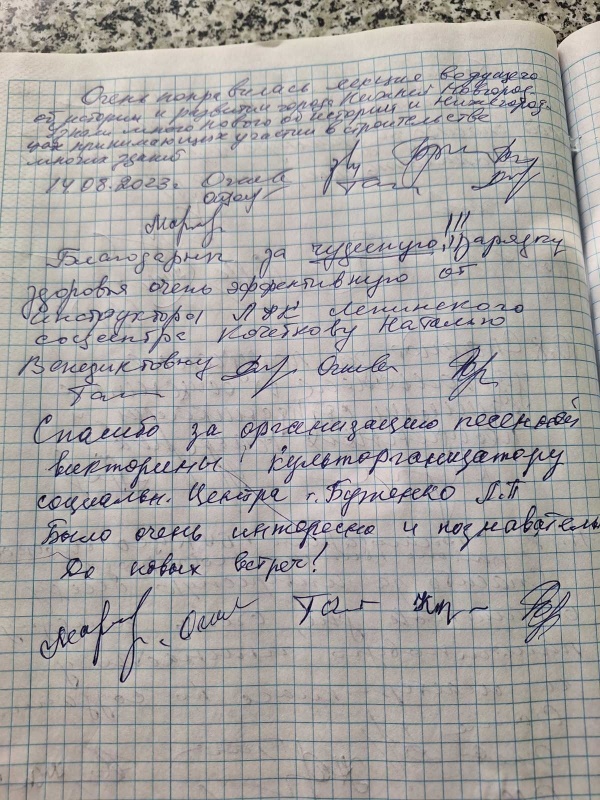 Очень понравилась лекция ведущего
об истории и развитии города Нижний Новгород.
Узнали много нового об истории и Нижегород-
цах принимающих участии в строительстве
многих зданий
14.08.2023г. Огнева
Благодарим за чудесную!!! Зарядку
здоровья очень эффективную от
инструктора ЛФК Ленинского
соццентра Кочеткову Наталью
Венедиктовну Огнева
Спасибо за организацию песенной
викторины! Культорганизатору
социальн. Центра г. Буженко Л.П
Было очень интересно и познаватель
До новых встреч!